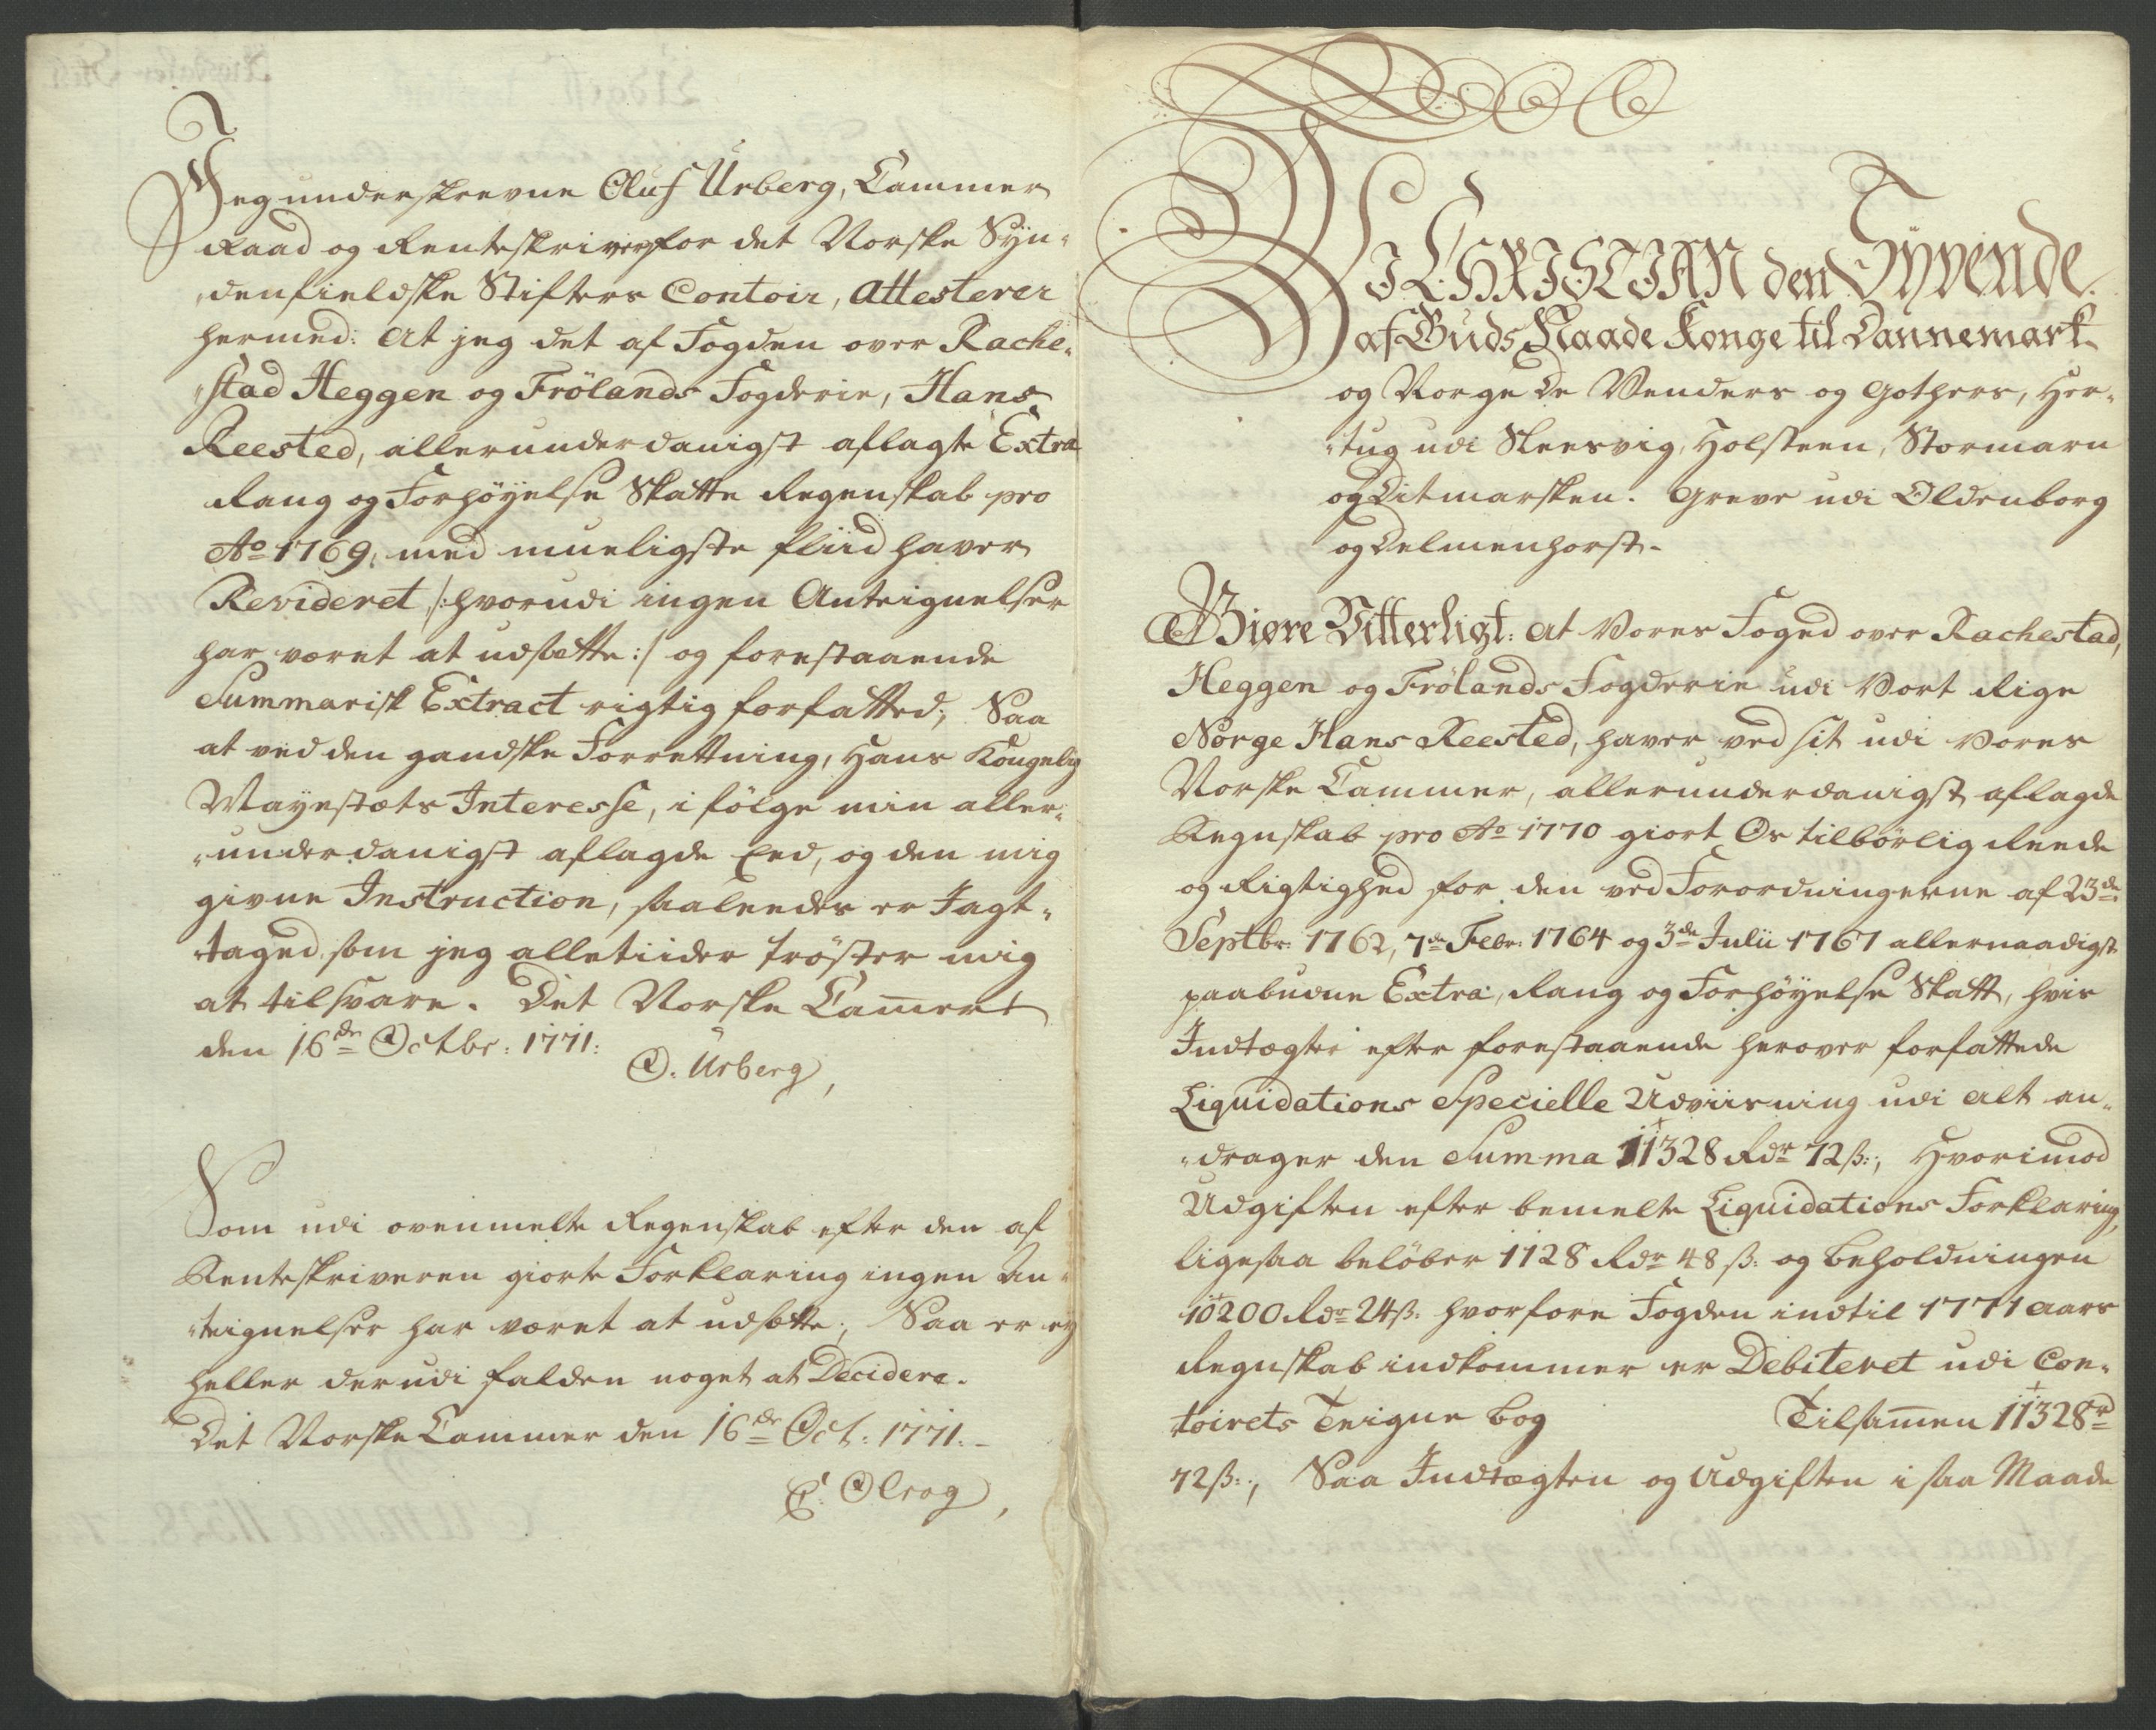 Jeg underskrevne Oluf Urberg, Cammer
Raad og Renteskriver for det Norske Syn-
denfieldske Stifters Contoir, Attesterer
hermed: At jeg det af Fogden over Rache-
stad Heggen og Frölands Fogderie, Hans
Reested, allerunderdanigst aflagte Extra
Rang og Forhöyelse Skatte Regenskab pro
Ao 1769, med mueligste fliid haver
Revideret /: hvorudi ingen Anteignelser
har været at udsætte :/ og forestaaende
Summarisk Extract rigtig forfatted; Saa
at ved den gandske Forrettning, Hans Kongelig
Mayestæts Interesse, i fölge min aller-
underdanigst aflagde Eed, og den mig
givne Instruction, saaleedes er Jagt-
taged, som jeg alletiider tröster mig
at tilsvare. Det Norske Cam̄ert
den 16de Octbr: 1771:
O. Urberg,
Som udi ovenmelte Regenskab efter den af
Renteskriveren giorte Forklaring ingen An-
teignelser har været at udsætte; Saa er ey
heller derudi falden noget at Decidere.
Det Norske Cammer den 16de Oct: 1771. -
C. Olrog,
VI CHRISTIAN den Syvende
af Guds Naade Konge til Dannemark
og Norge De Venders og Gothers, Her-
tug udi Sleesvig, Holsteen, Stormarn
og Ditmarsken. Greve udi Oldenborg
og Delmenhorst.
Giøre Vitterligt: At Vores Foged over Rachestad,
Heggen og Frölands Fogderie udi Vort Rige
Norge Hans Reested, haver ved sit udi Vores
Norske Cammer, allerunderdanigst aflagde
Regnskab pro Ao 1770 giort Os tilbörlig Reede
og Rigtighed for den ved Forordningerne af 23de
Septbr: 1762, 7de Febr: 1764 og 3de Julii 1767 allernaadigst
paabudne Extra, Rang og Forhöyelse Skatt, hvis
Indtægter efter forestaaende herover forfattede
Liquidations Specielle Udviisning udi alt an-
drager den Summa 11328 Rdr 72 ß:, Hvorimod
Udgiften efter bemelte Liquidations Forklaring,
ligesaa belöber 1128 Rdr 48 ß: og beholdningen
10200 Rdr 24 ß: hvorfore Fogden indtil 1771 Aars
Regnskab indkommer er Debiteret udi Con-
toirets Teigne bog Tilsam̄en 11328 r
72 ß:, Saa Indtægten og Udgiften i saa Maade